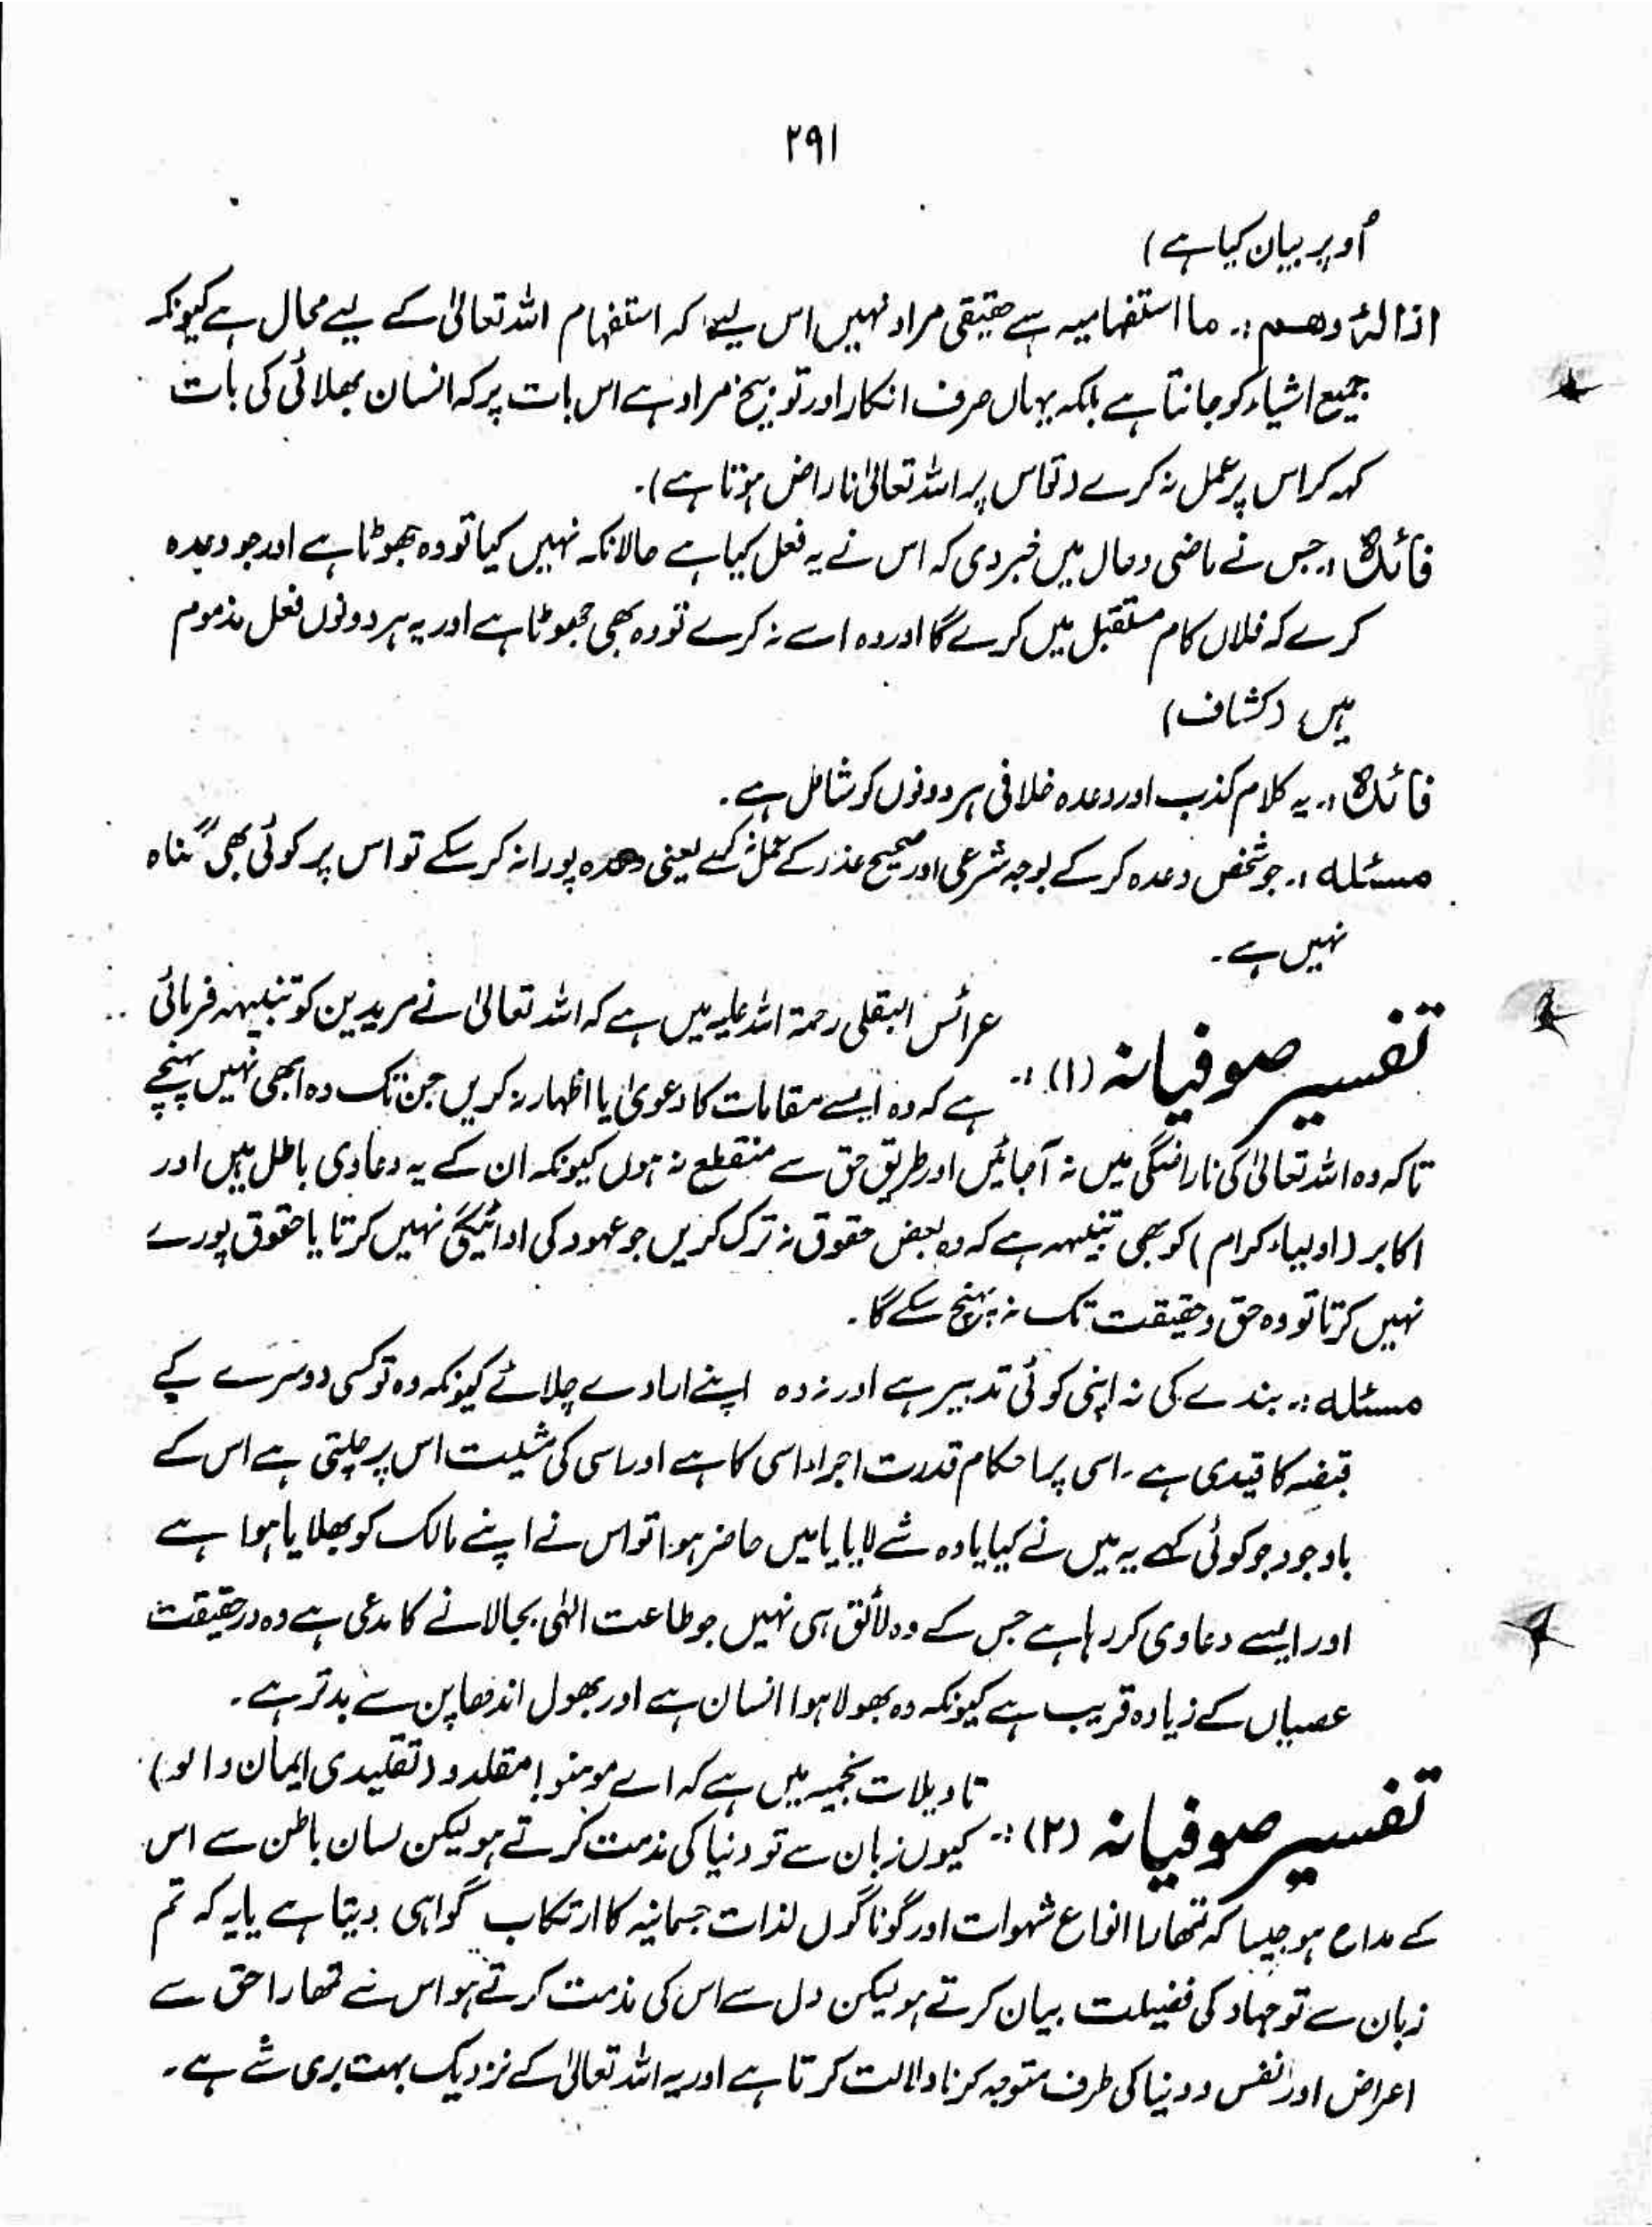 ۲۹۱
اُوپر بیان کیا ہے)
ازالۂ وھم :۔ ما استفہامیہ ہے حقیقی مراد نہیں اس لیے کہ استفہام اللہ تعالیٰ کے لیے محال ہے کیونکہ
جمیع اشیاء کو جانتا ہے بلکہ یہاں صرف انکار اور توبیخ مراد ہے اس بات پر کہ انسان بھلائی کی بات
کہہ کر اس پر عمل نہ کرے (تو اس پر اللہ تعالیٰ ناراض ہوتا ہے)۔
فائدہ :۔ جس نے ماضی و حال میں خبر دی کہ اس نے یہ فعل کیا ہے حالانکہ نہیں کیا تو وہ جھوٹا ہے اور جو وعدہ
کرے کہ فلاں کام مستقبل میں کرے گا اور وہ اسے نہ کرے تو وہ بھی جھوٹا ہے اور یہ ہر دونوں فعل مذموم
ہیں (کشاف)
فائدہ :۔ یہ کلام کذب اور وعدہ خلافی ہر دونوں کو شامل ہے۔
مسئلہ :۔ جو شخص وعدہ کر کے بوجہ شرعی اور صحیح عذر کے عمل نہ کرے یعنی وعدہ پورا نہ کر سکے تو اس پر کوئی بھی گناہ
نہیں ہے۔
تفسیر صوفیانہ (۱) :۔ عرائس البقلی رحمۃ اللہ علیہ میں ہے کہ اللہ تعالیٰ نے مریدین کو تنبیہہ فرمائی
ہے کہ وہ ایسے مقامات کا دعویٰ یا اظہار نہ کریں جن تک وہ ابھی نہیں پہنچے
تاکہ وہ اللہ تعالیٰ کی ناراضگی میں نہ آجائیں اور طریق حق سے منقطع نہ ہوں کیونکہ ان کے یہ دعاوی باطل ہیں اور
اکابر (اولیاء کرام) کو بھی تنبیہہ ہے کہ وہ بعض حقوق نہ ترک کریں جو عہود کی ادائیگی نہیں کرتا یا حقوق پورے
نہیں کرتا تو وہ حق و حقیقت تک نہ پہنچ سکے گا۔
مسئلہ :۔ بندے کی نہ اپنی کوئی تدبیر ہے اور نہ وہ اپنے ارادے چلائے کیونکہ وہ تو کسی دوسرے کے
قبضہ کا قیدی ہے۔ اسی پر احکام قدرت اجراء اسی کا ہے اور اسی کی مشیت اس پر چلتی ہے اس کے
باوجود جو کوئی کہے یہ میں نے کیا یا وہ شے لایا یا میں حاضر ہوا تو اس نے اپنے مالک کو بھلایا ہوا ہے
اور ایسے دعاوی کر رہا ہے جس کے وہ لائق ہی نہیں جو طاعت الٰہی بجا لانے کا مدعی ہے وہ درحقیقت
عصیاں کے زیادہ قریب ہے کیونکہ وہ بھولا ہوا انسان ہے اور بھول اندھاپن سے بدتر ہے۔
تفسیر صوفیانہ (۲) :۔ تاویلات نجمیہ میں ہے کہ اے مومنو! مقلدو (تقلیدی ایمان والو)
کیوں زبان سے تو دنیا کی مذمت کرتے ہو لیکن لسان باطن سے اس
کے مداح ہو جیسا کہ تمھارا انواع شہوات اور گوناگوں لذات جسمانیہ کا ارتکاب گواہی دیتا ہے یا یہ کہ تم
زبان سے تو جہاد کی فضیلت بیان کرتے ہو لیکن دل سے اس کی مذمت کرتے ہو اس نے تمھارا حق سے
اعراض اور نفس و دنیا کی طرف متوجہ کرنا دلالت کرتا ہے اور یہ اللہ تعالیٰ کے نزدیک بہت بری شے ہے۔